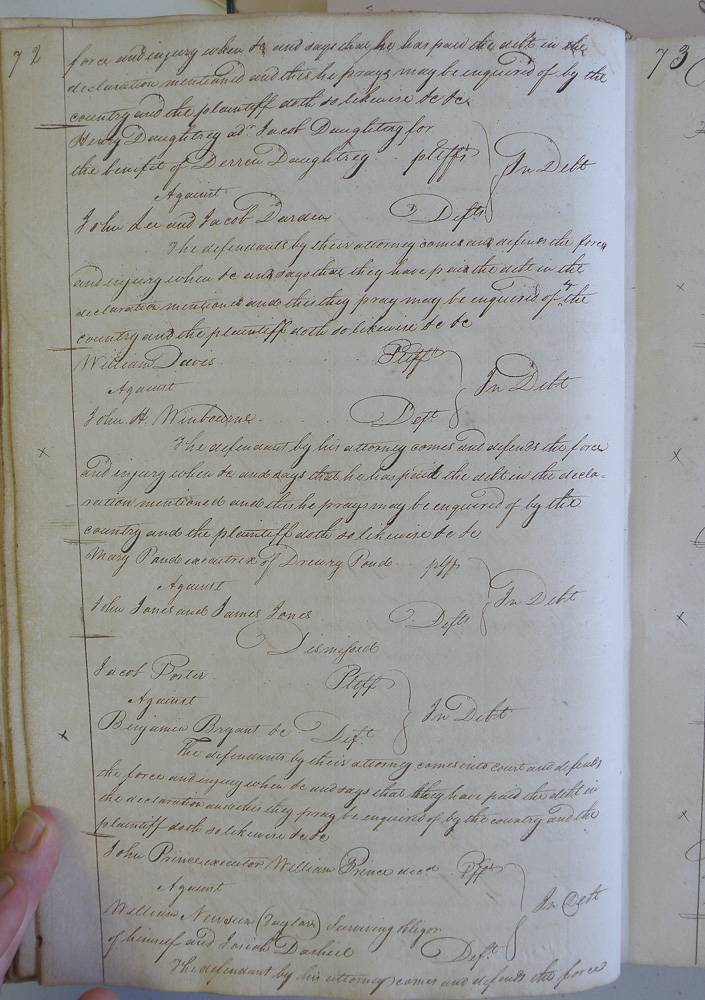 72
force and injury when &c and says that he has paid the debt in the
declaration mentioned and this he prays may be enquired of by the
country and the plaintiff doth so likewise &c &c
Henry Daughtrey adr. Jacob Daughtrey for
the benefit of Derren Daughtrey plffs In Debt
Against
John Lee and Jacob Darden Defts
The defendants by their attorney comes and defends the force
and injury when &c and says that they have paid the debt in the
declaration mentioned and this they pray may be enquired of by the
country and the plaintiff doth so likewise &c &c
William Davis Plff In Debt
Against
John H. Winbourne Deft.
The defendant by his attorney comes and defends the force
and injury when &c and says that he has paid the debt in the decla-
ration mentioned and this he prays may be enquired of by the
country and the plaintiff doth so likewise &c &c
Mary Pond executrix of Drewry Pond plff In Debt
Against
John Jones and James Jones Defts
Dismissed
Jacob Porter Plff In Debt
Against
Benjamin Bryant &c Deft.
The defendants by their attorney comes into court and defends
the force and injury when &c and says that they have paid the debt in
the declaration and this they pray be enquired of by the country and the
plaintiff doth so likewise &c &c
John Prince executor William Prince decd Plff In Debt
Against
William Newsum (Taylor) Surviving obligor
of himself and Josiah Deft.
The defendant by his attorney comes and defends the force
73